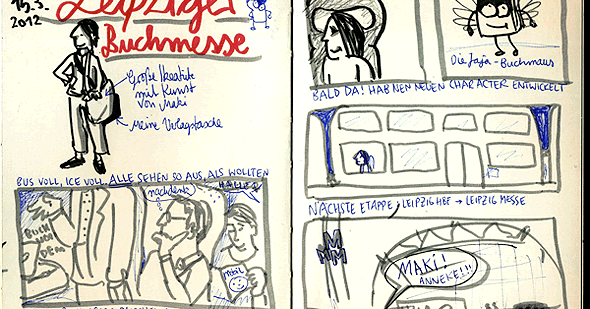 15.3.
2012
Leipziger
Buchmesse
Große Ikeatüte
mit Kunst
von Maki
Meine Verlagstasche
BUS VOLL, ICE VOLL. ALLE SEHEN SO AUS, ALS WOLLTEN
nachdenk
HALLE?
BUCH
VON
DEM
mobil
Die Jaja-Buchmaus
BALD DA! HAB NEN NEUEN CHARACTER ENTWICKELT
NÄCHSTE ETAPPE: LEIPZIG HBF → LEIPZIG MESSE
MM
M
MAKI!
ANNEKE!!!